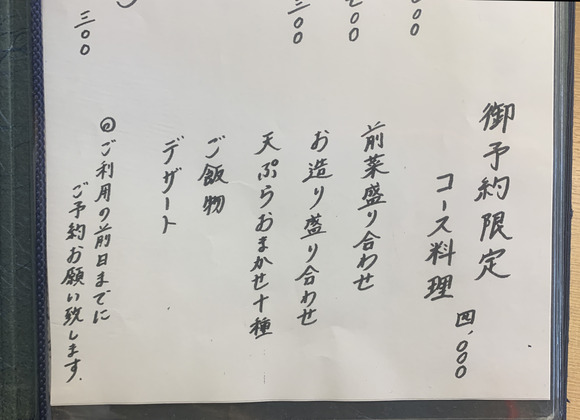 御予約限定
コース料理 四,〇〇〇
前菜盛り合わせ
お造り盛り合わせ
天ぷらおまかせ十種
ご飯物
デザート
◎ご利用の前日までに
ご予約お願い致します.
〇〇
〇〇
三〇〇
三〇〇